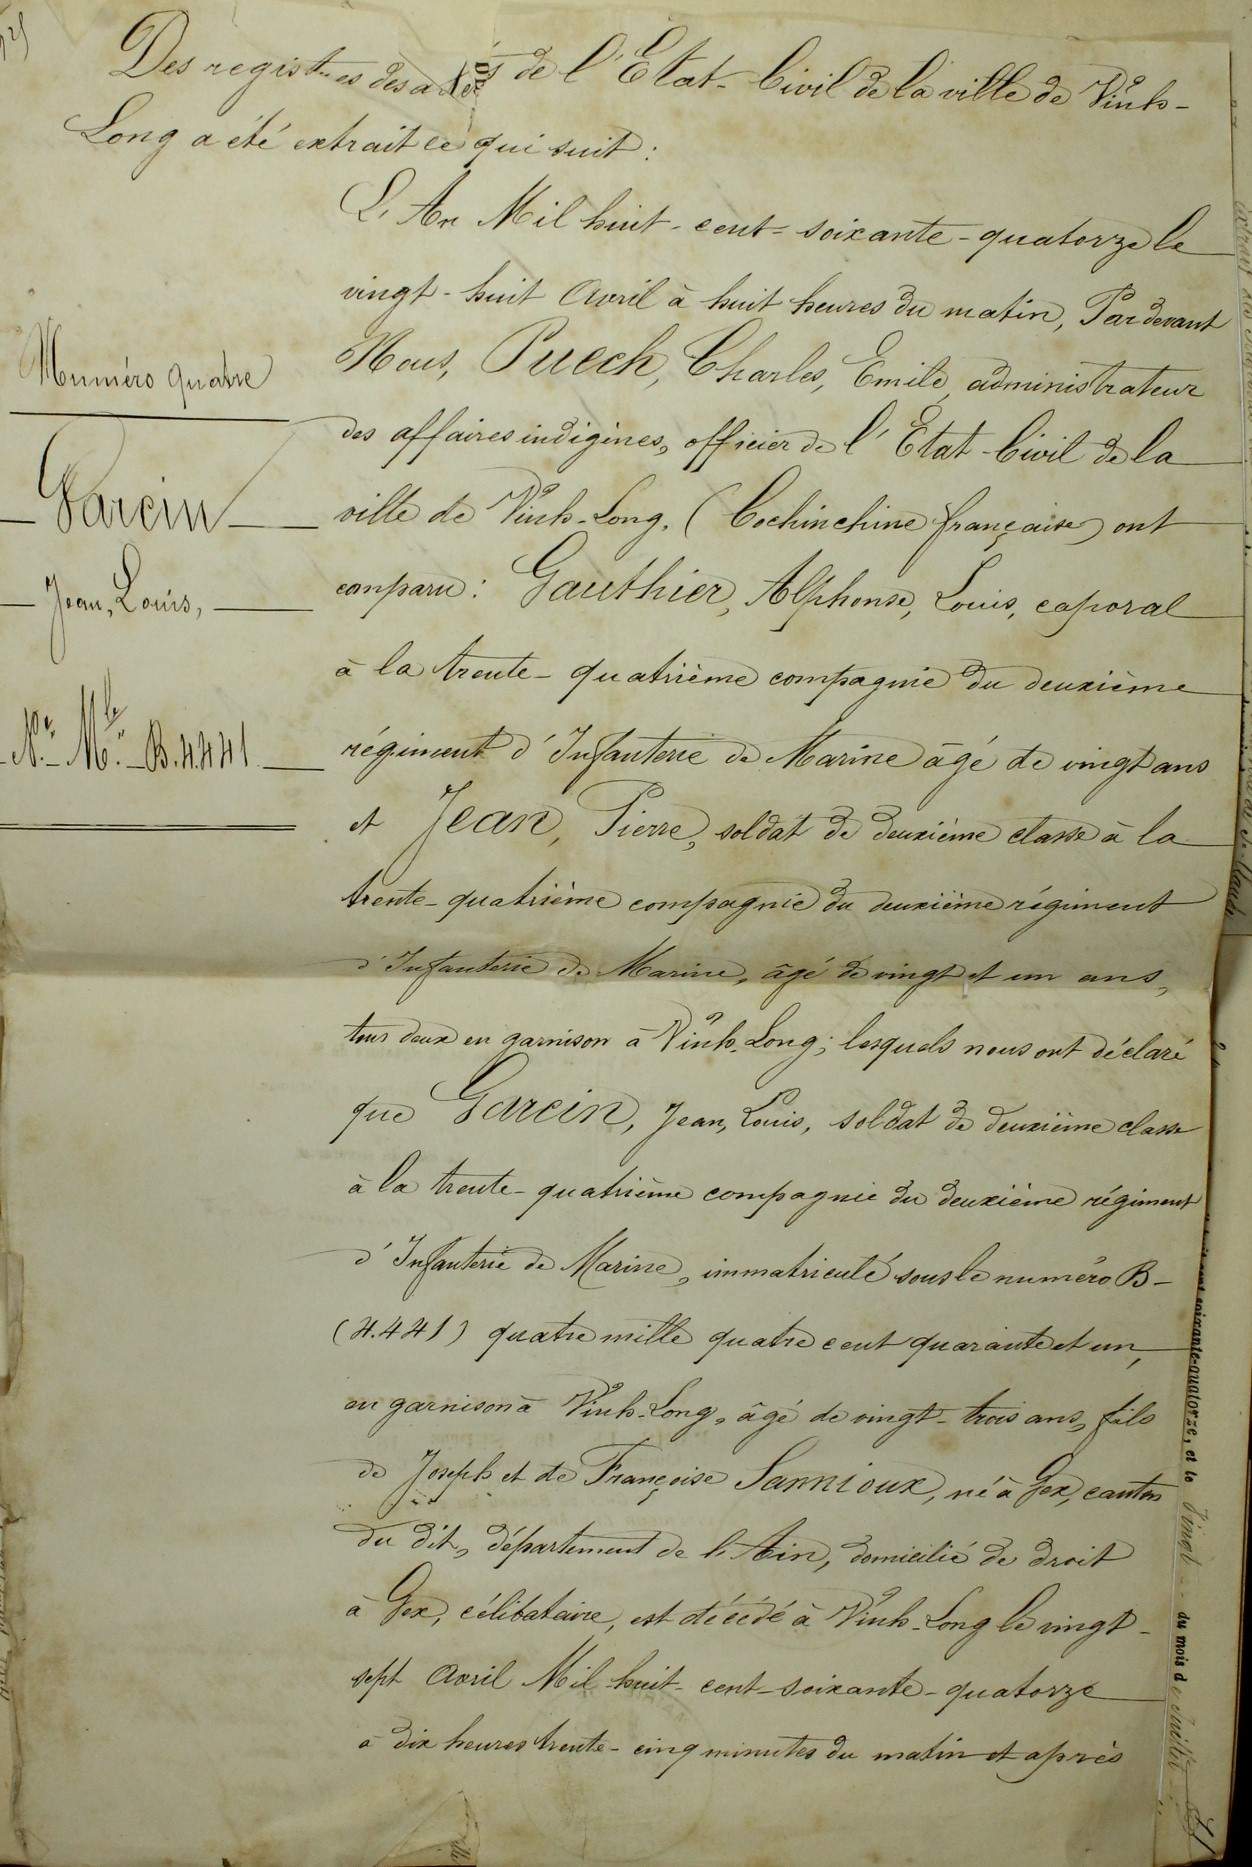 Des registres des actes de l'Etat-Civil de la ville de Vinh-
Long a été extrait ce qui suit :
L'An Mil huit-cent-soixante-quatorze le
vingt-huit Avril à huit heures du matin, Par devant
Numéro quatre
Nous, Puech, Charles, Emile, administrateur
des affaires indigènes, officier de l'Etat-Civil de la
Garcin
ville de Vinh-Long, (Cochinchine française) ont
Jean, Louis,
comparu : Gauthier, Alphonse, Louis, caporal
à la trente-quatrième compagnie du deuxième
No Mle B.4.441
régiment d'Infanterie de Marine âgé de vingt ans
et Jean, Pierre, soldat de deuxième classe à la
trente-quatrième compagnie du deuxième régiment
d'Infanterie de Marine, âgé de vingt et un ans,
tous deux en garnison à Vinh-Long ; lesquels nous ont déclaré
que Garcin, Jean, Louis, soldat de deuxième classe
à la trente-quatrième compagnie du deuxième régiment
d'Infanterie de Marine, immatriculé sous le numéro B-
(4.441) quatre mille quatre cent quarante et un,
en garnison à Vinh-Long, âgé de vingt-trois ans, fils
de Joseph et de Françoise Sannioux, né à Gex, canton
du dit, département de l'Ain, domicilié de droit
à Gex, célibataire, est décédé à Vinh-Long le vingt-
sept Avril Mil-huit-cent-soixante-quatorze
à dix heures trente-cinq minutes du matin et après
soixante-quatorze, et le vingt du mois d